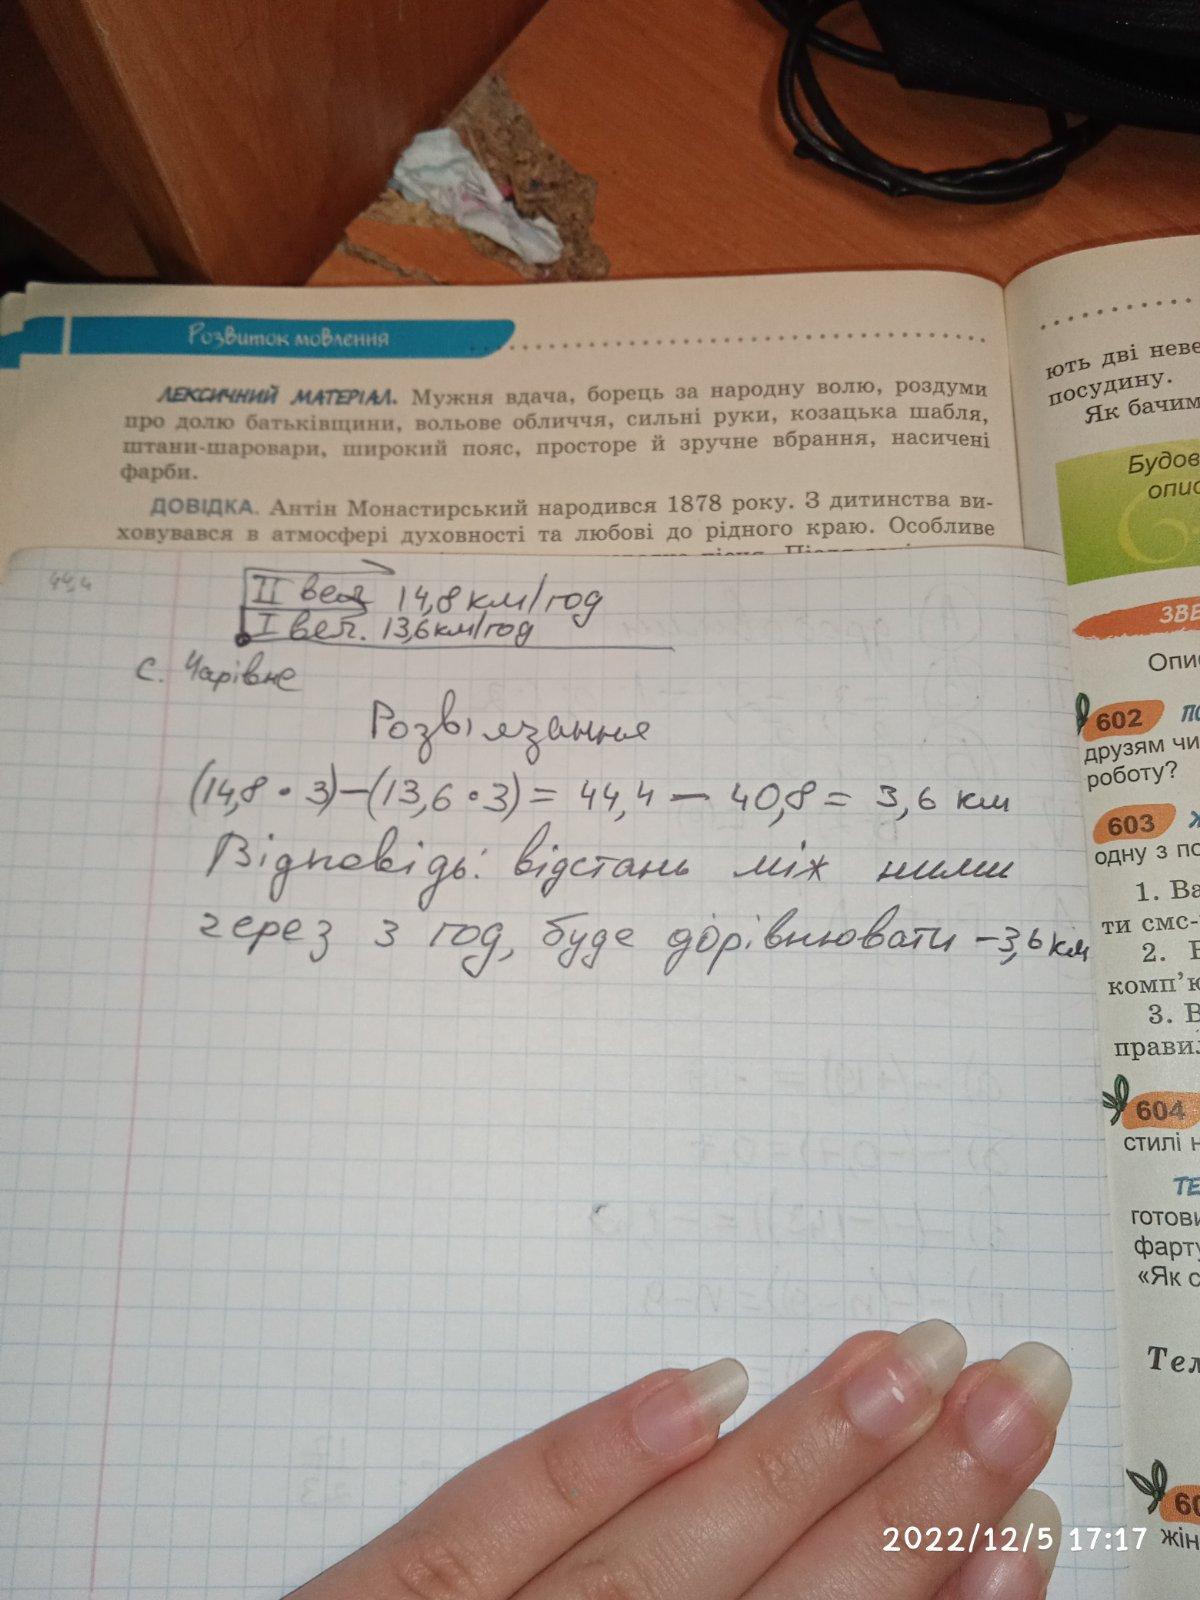 Розвиток мовлення
ЛЕКСИЧНИЙ МАТЕРІАЛ. Мужня вдача, борець за народну волю, роздуми
про долю батьківщини, вольове обличчя, сильні руки, козацька шабля,
штани-шаровари, широкий пояс, просторе й зручне вбрання, насичені
фарби.
ДОВІДКА. Антін Монастирський народився 1878 року. З дитинства ви-
ховувався в атмосфері духовності та любові до рідного краю. Особливе
44,4
II вел 14,8 км/год
I вел. 13,6 км/год
с. Чарівне
Розвіязання
(14,8 • 3) – (13,6 • 3) = 44,4 – 40,8 = 3,6 км
Відповідь: відстань між ними
через 3 год, буде дорівнювати – 3,6 км
ють дві неве
посудину.
Як бачим
Будов
опис
ЗВЕ
Опи
602 ПО
друзям чи
роботу?
603
одну з по
1. Ва
ти смс-
2.
комп'ю
3. В
правил
604
стилі н
ТЕ
готови
фарту
«Як с
Тем
60
жін
2022/12/5 17:17